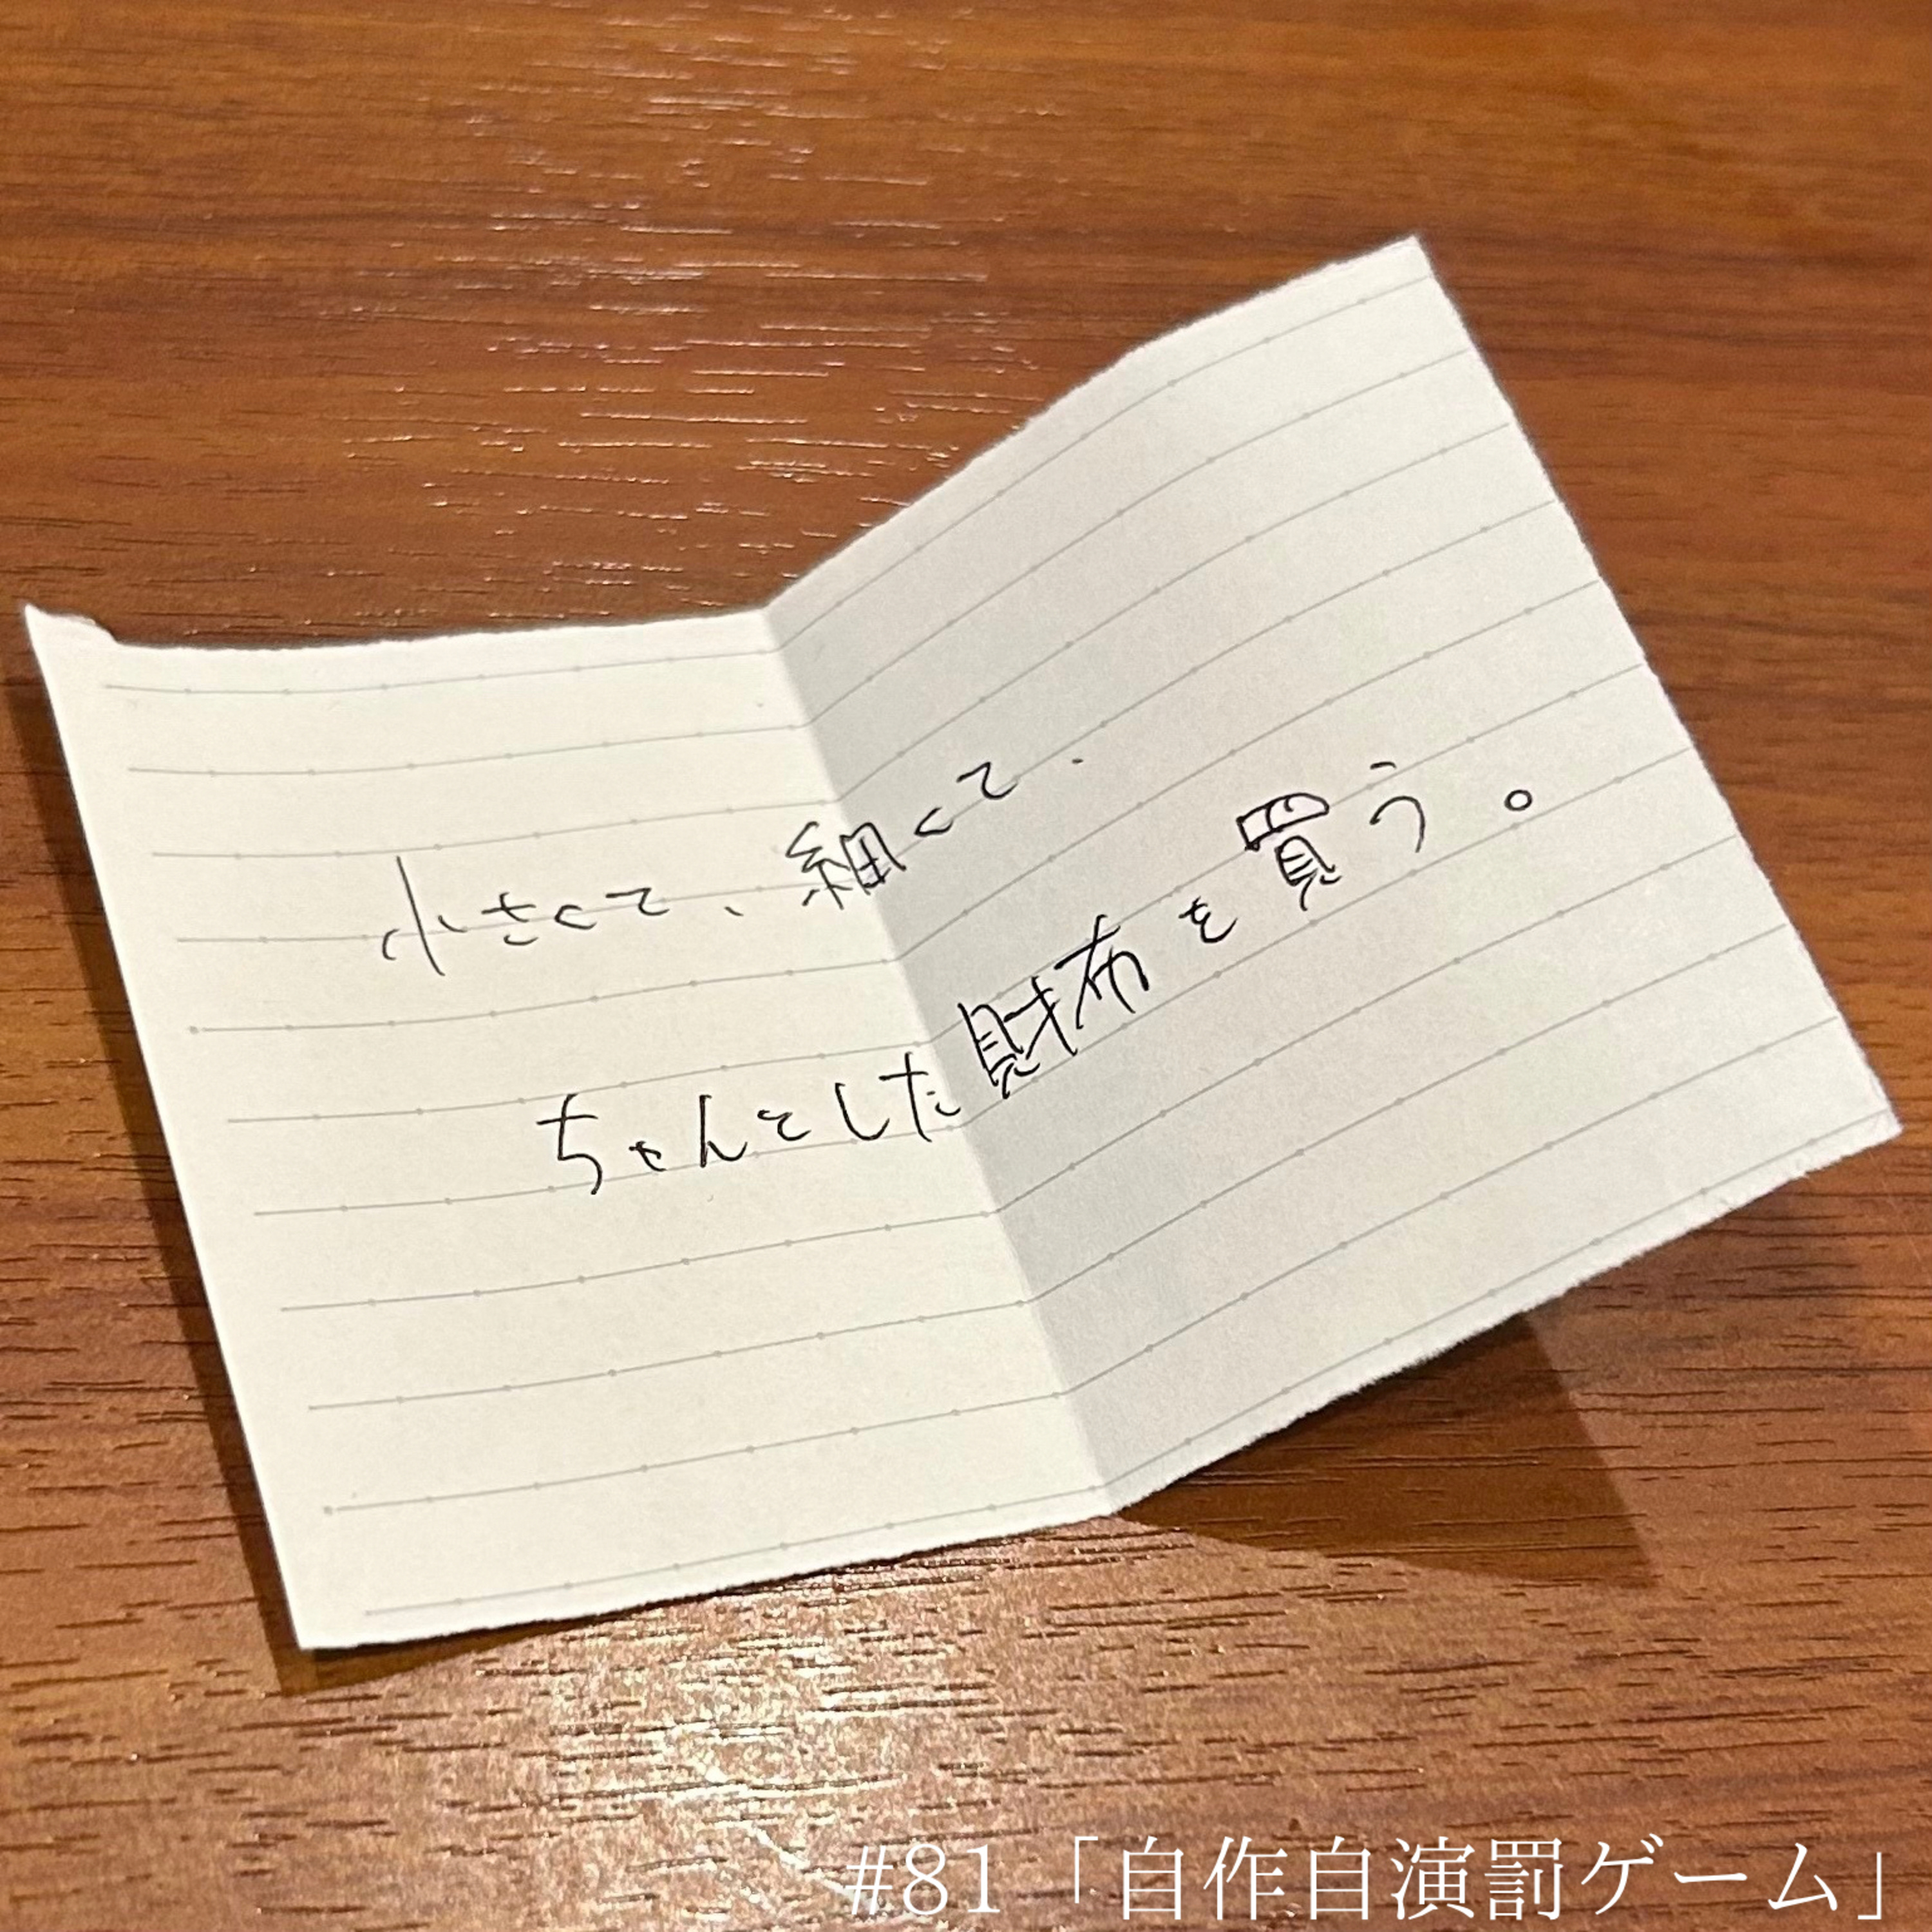 小さくて、細くて、
ちゃんとした財布を買う。
#81「自作自演罰ゲーム」